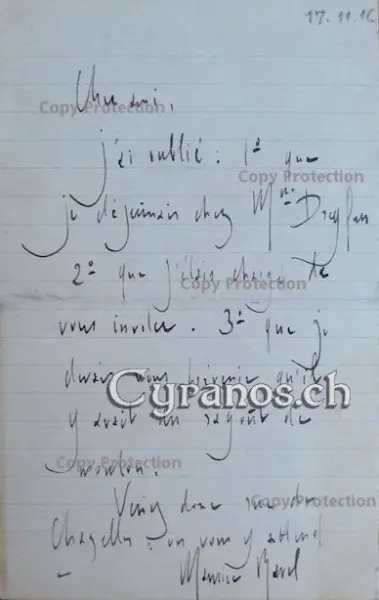 17.11.16
Cher ami,
Copy Protection
j'ai oublié : 1º que
Copy Protection
je déjeunais chez Mme Dreyfus
2º que j'étais chargé de
Copy Protection
vous inviter. 3º que je
devais vous prévenir qu'il
Cyranos.ch
y avait un ragoût de
mouton.
Copy Protection
Venez donc rue de
Copy Protection
Chazelles : on vous y attend
Maurice Ravel